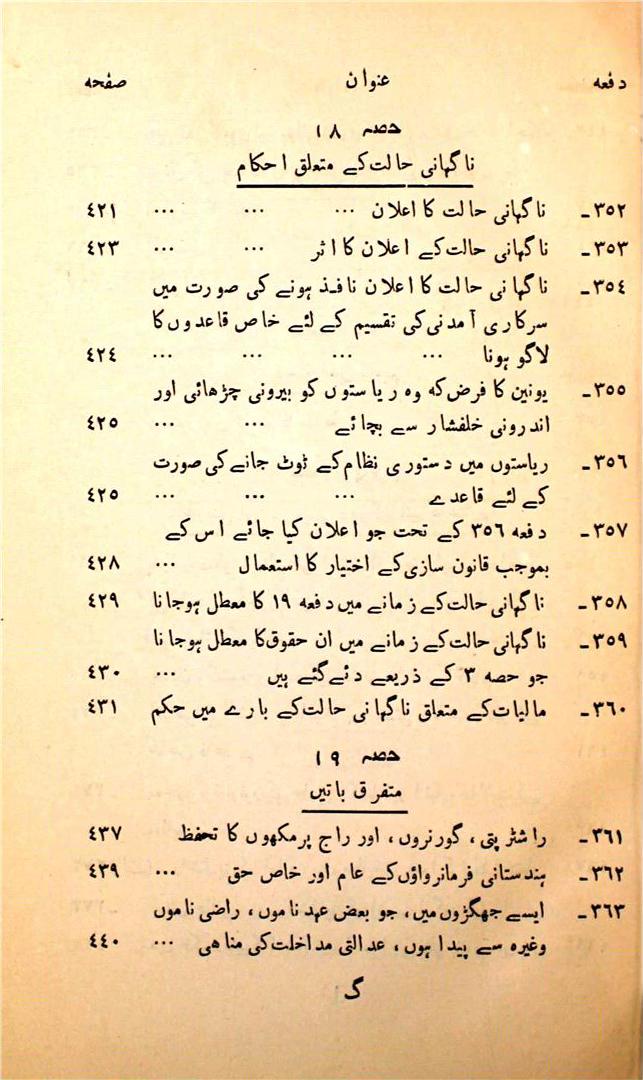 دفعہ عنوان صفحہ
حصہ ۱۸
ناگہانی حالت کے متعلق احکام
۳۵۲۔ ناگہانی حالت کا اعلان ... ... ... ٤۲۱
۳۵۳۔ ناگہانی حالت کے اعلان کا اثر ... ... ٤۲۳
۳۵٤۔ ناگہانی حالت کا اعلان نافذ ہونے کی صورت میں
سرکاری آمدنی کی تقسیم کے لئے خاص قاعدوں کا
لاگو ہونا ... ... ... ... ٤۲٤
۳۵۵۔ یونین کا فرض کہ وہ ریاستوں کو بیرونی چڑھائی اور
اندرونی خلفشار سے بچائے ... ... ٤۲۵
۳۵٦۔ ریاستوں میں دستوری نظام کے ٹوٹ جانے کی صورت
کے لئے قاعدے ... ... ... ٤۲۵
۳۵۷۔ دفعہ ۳۵٦ کے تحت جو اعلان کیا جائے اس کے
بموجب قانون سازی کے اختیار کا استعمال ... ٤۲۸
۳۵۸۔ ناگہانی حالت کے زمانے میں دفعہ ۱۹ کا معطل ہوجانا ٤۲۹
۳۵۹۔ ناگہانی حالت کے زمانے میں ان حقوق کا معطل ہوجانا
جو حصہ ۳ کے ذریعے دئے گئے ہیں ... ٤۳۰
۳٦۰۔ مالیات کے متعلق ناگہانی حالت کے بارے میں حکم ٤۳۱
حصہ ۱۹
متفرق باتیں
۳٦۱۔ راشٹرپتی، گورنروں، اور راج پرمکھوں کا تحفظ ٤۳۷
۳٦۲۔ ہندستانی فرمانرواؤں کے عام اور خاص حق ... ٤۳۹
۳٦۳۔ ایسے جھگڑوں میں، جو بعض عہدناموں، راضی ناموں
وغیرہ سے پیدا ہوں، عدالتی مداخلت کی مناہی ... ٤٤۰
گ